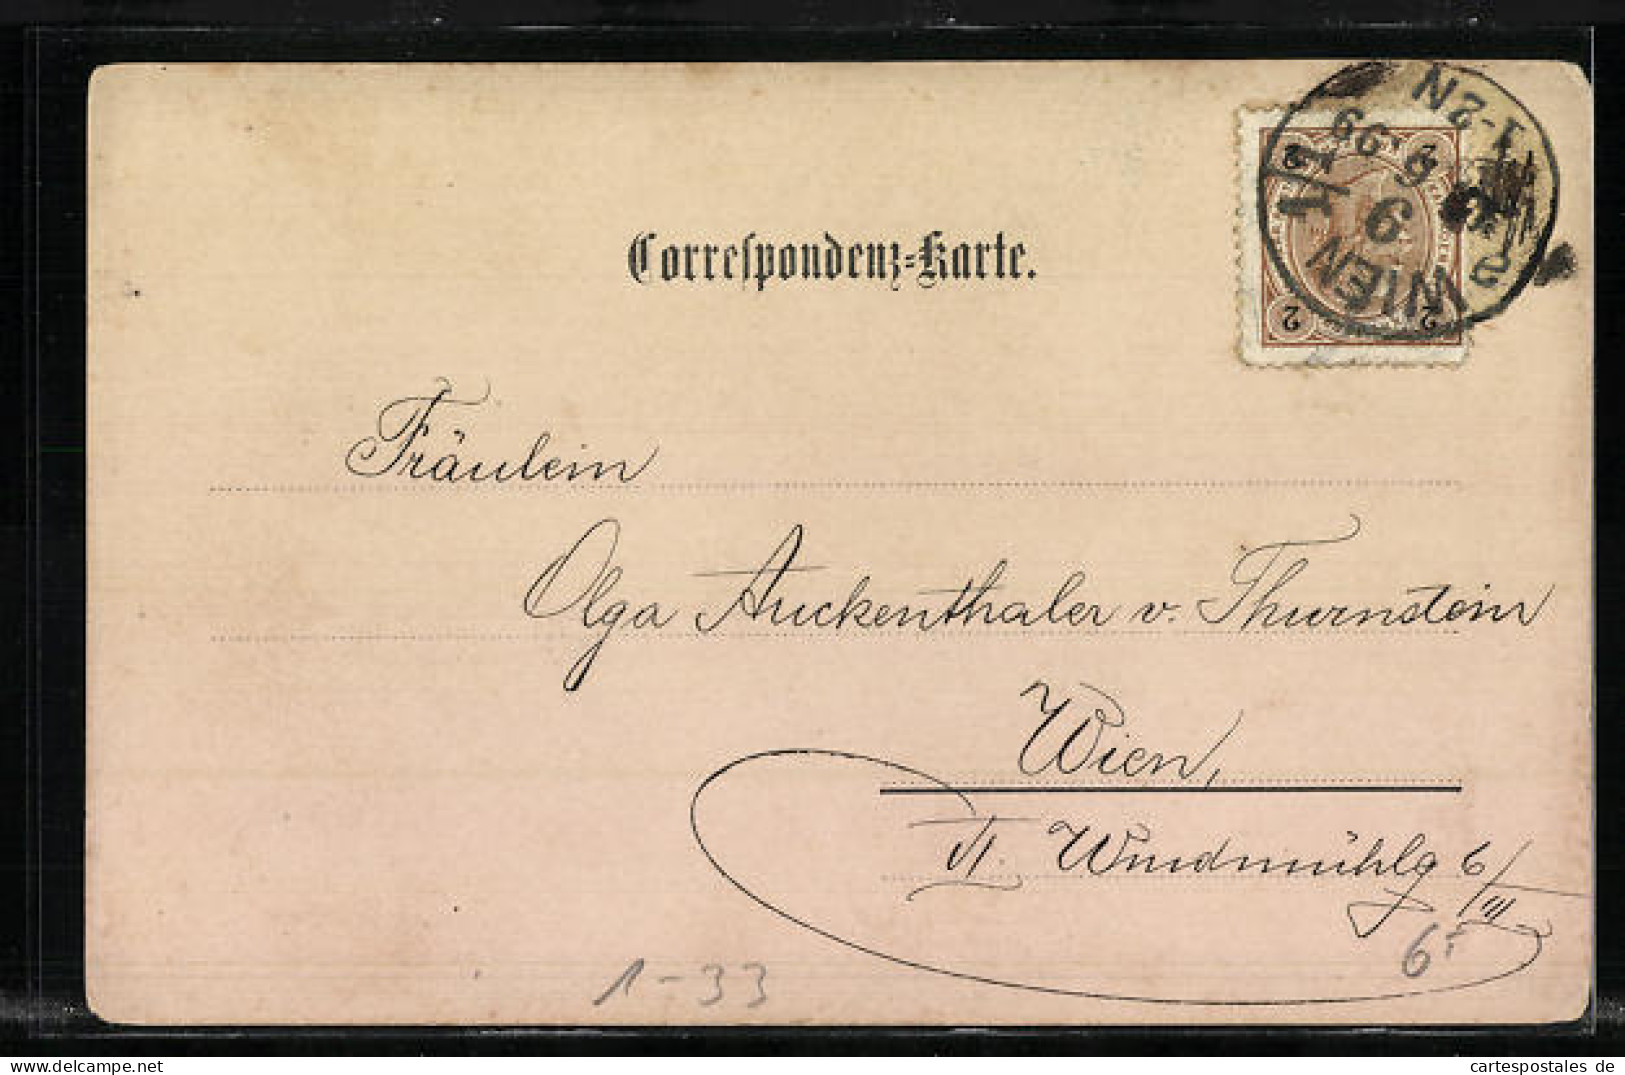 Correspondenz-Karte.
2 2
WIEN 1/1
9 6.99
1-2N
Fräulein
Olga Auckenthaler v. Thurnstein
Wien,
VI. Windmühlg 6/III
6
1-33
cartespostales de